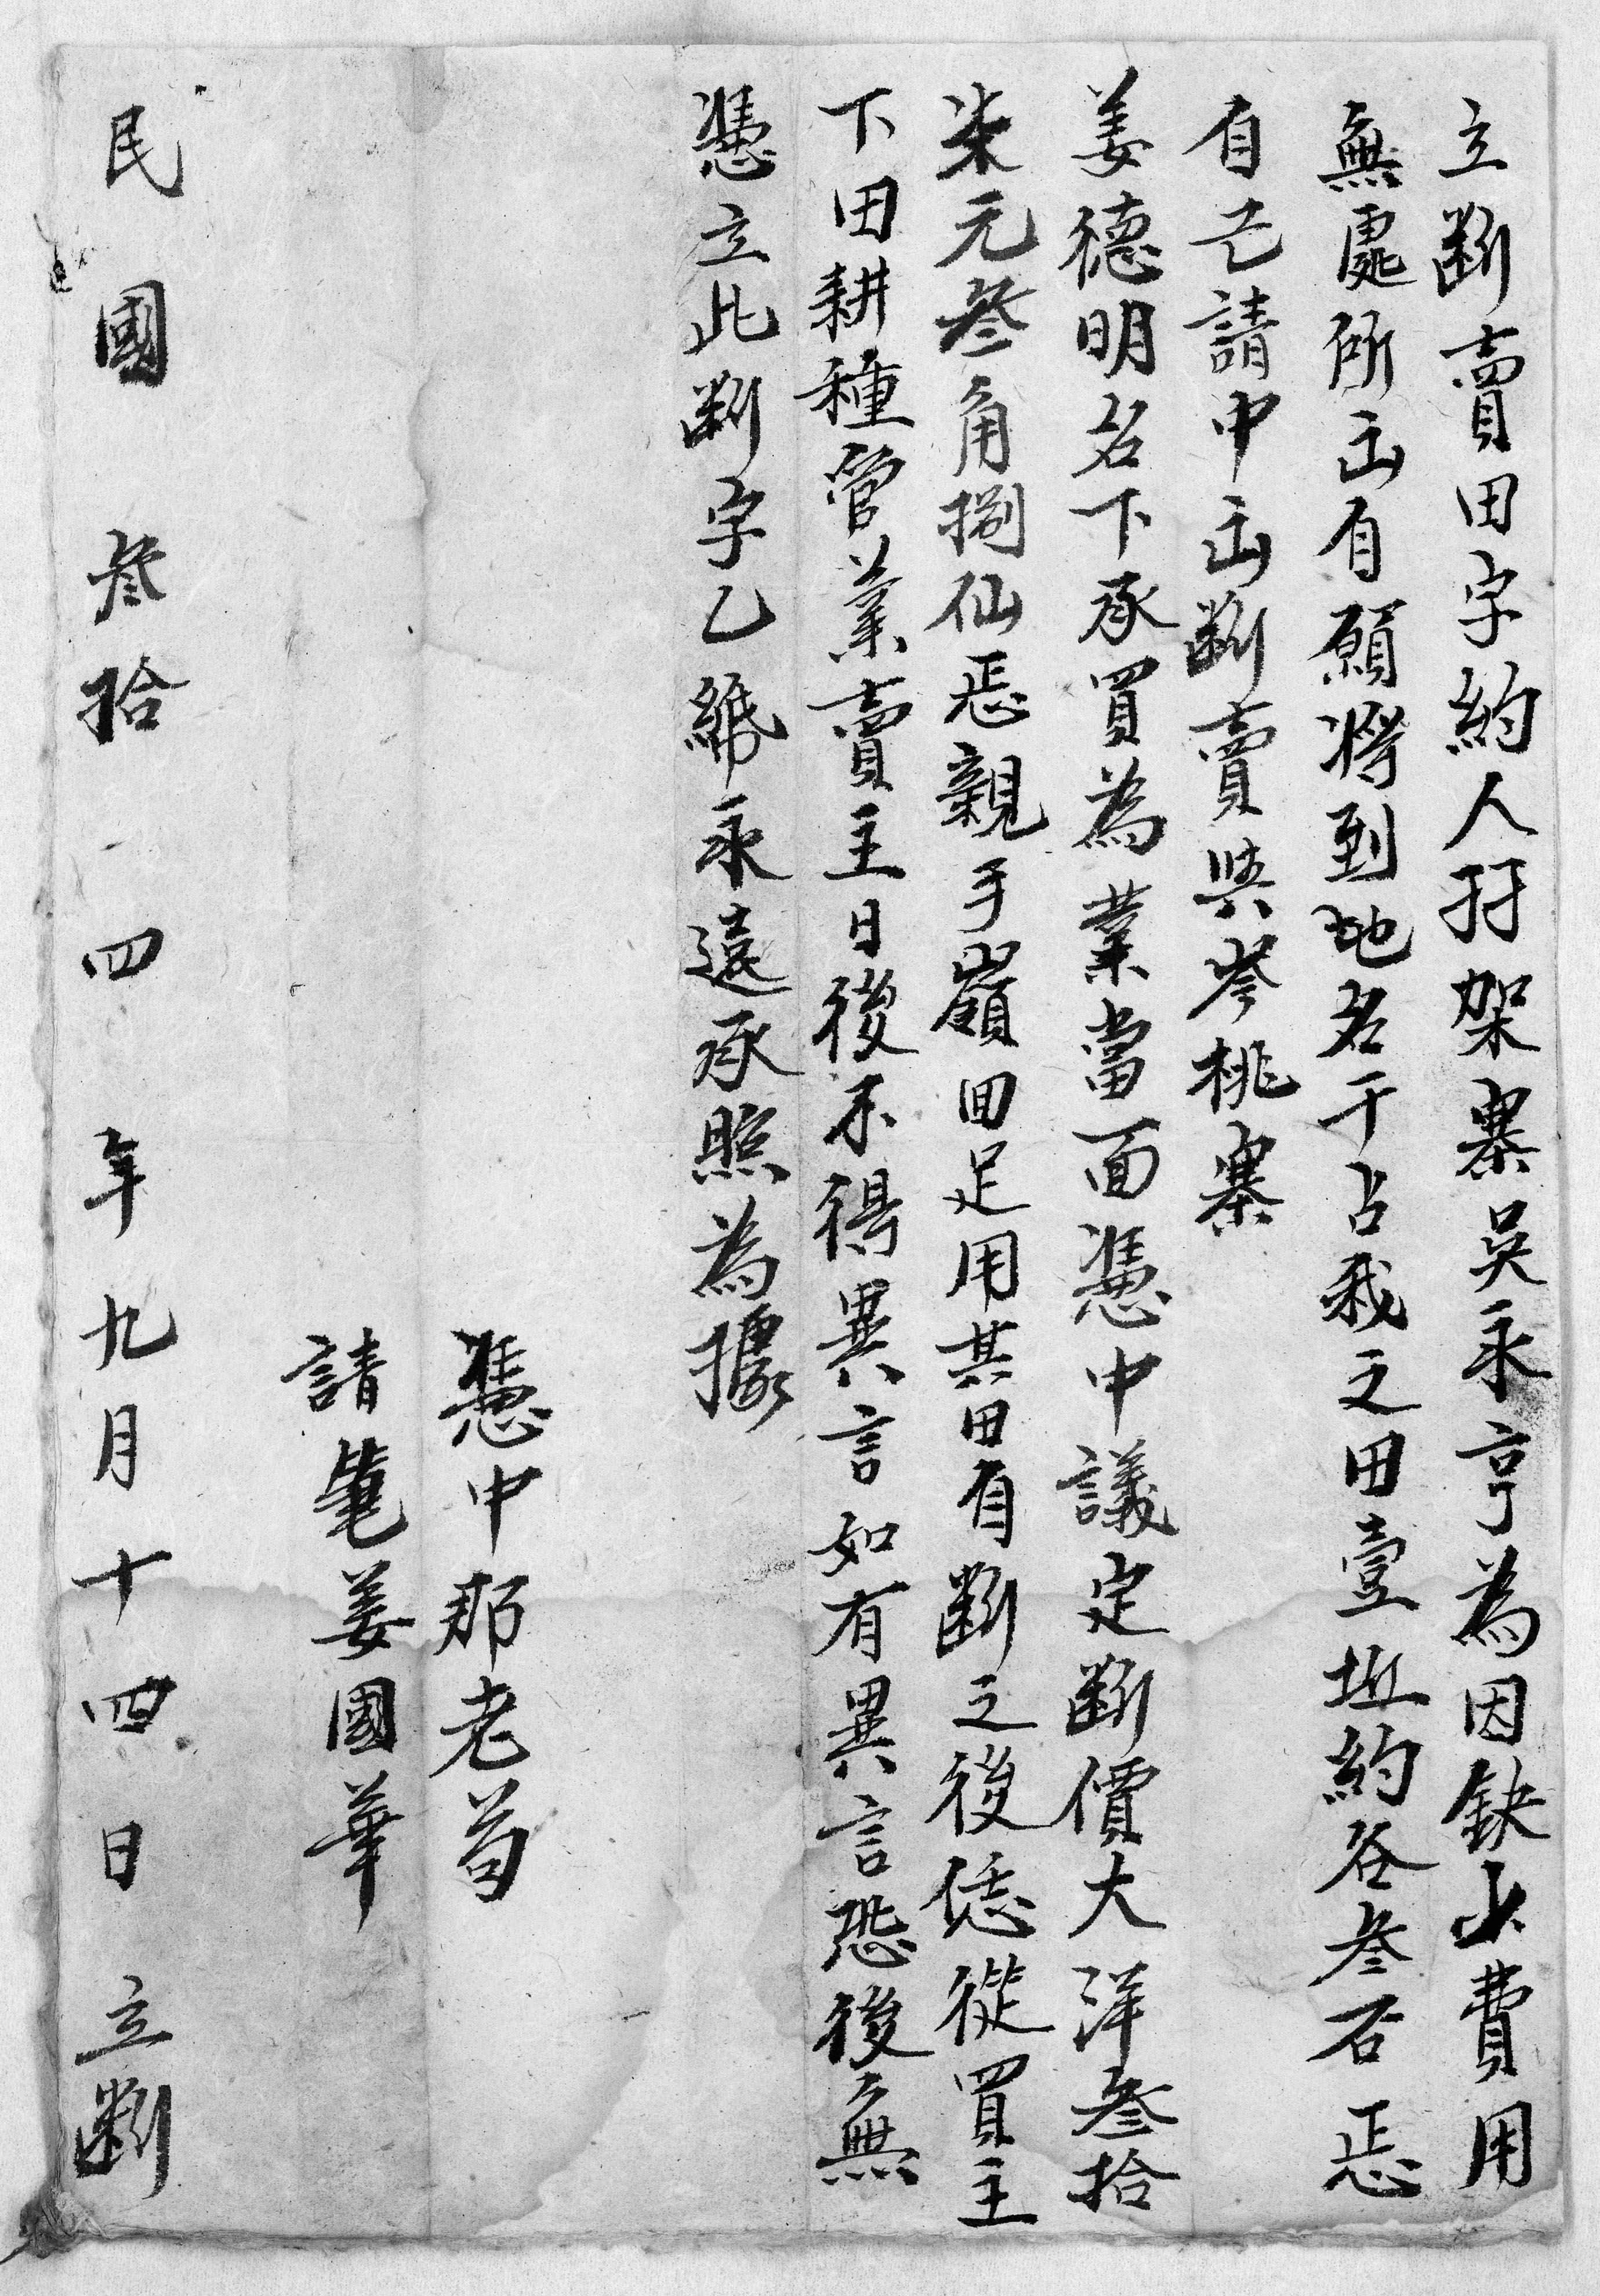 立斷賣田字約人孖架寨吳永亨為因缺少費用
無處所出自願將到地名干占我之田壹坵約谷叁石恁
自己請中出斷賣與岑桃寨
姜德明名下承買為業當面憑中議定斷價大洋叁拾
柒元叁角捌仙恁親手嶺回足用其田自斷之後恁從買主
下田耕種管業賣主日後不得異言如有異言恐後無
憑立此斷字乙紙永遠承照為據
憑中那老苟
請筆姜國華
民國叁拾四年九月十四日立斷